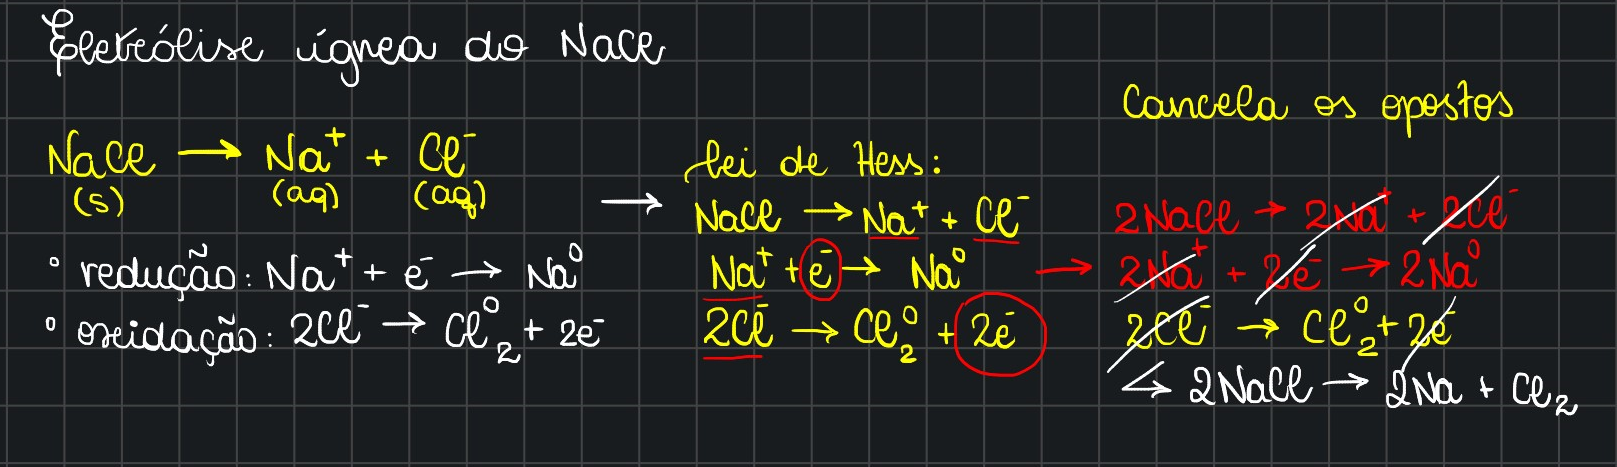 Eletrólise ígnea do NaCl
NaCl → Na⁺ + Cl⁻
(s) (aq) (aq)
• redução: Na⁺ + e⁻ → Na⁰
• oxidação: 2Cl⁻ → Cl₂⁰ + 2e⁻
→
Lei de Hess:
NaCl → Na⁺ + Cl⁻
Na⁺ + e⁻ → Na⁰
2Cl⁻ → Cl₂⁰ + 2e⁻
→
Cancela os opostos
2NaCl → 2Na⁺ + 2Cl⁻
2Na⁺ + 2e⁻ → 2Na⁰
2Cl⁻ → Cl₂⁰ + 2e⁻
↳ 2NaCl → 2Na + Cl₂